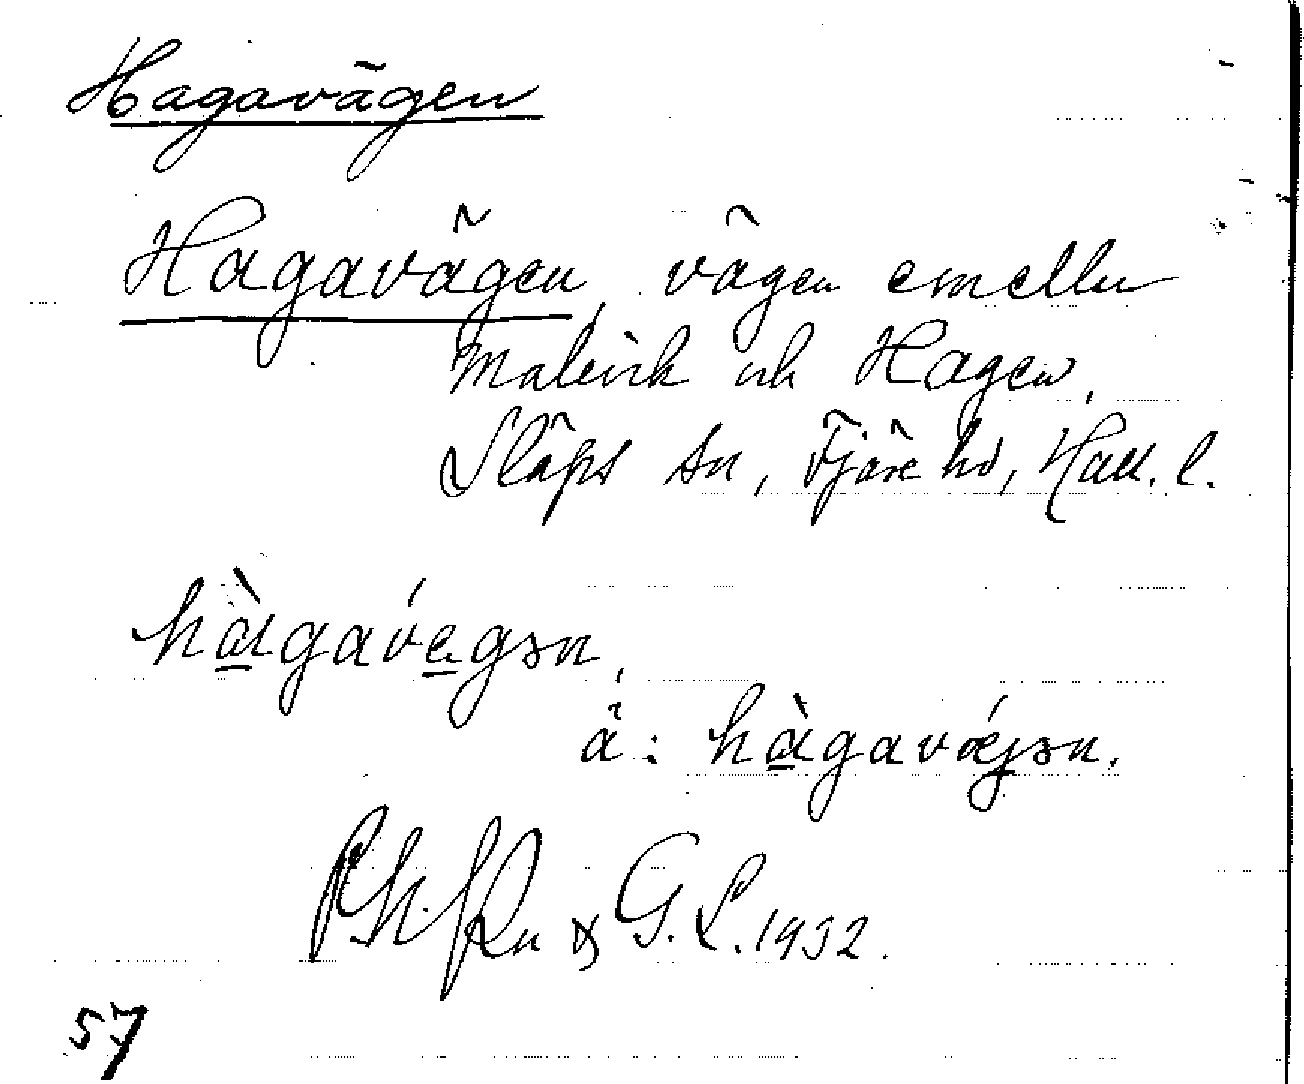 Hagavägen
Hagavägen, vägen emellan
Malevik och Hagen,
Släps sn, Fjäre hd, Hall. l.
hàgavǽgən,
ä: hàgavǽjən.
G. L. 1932.
57